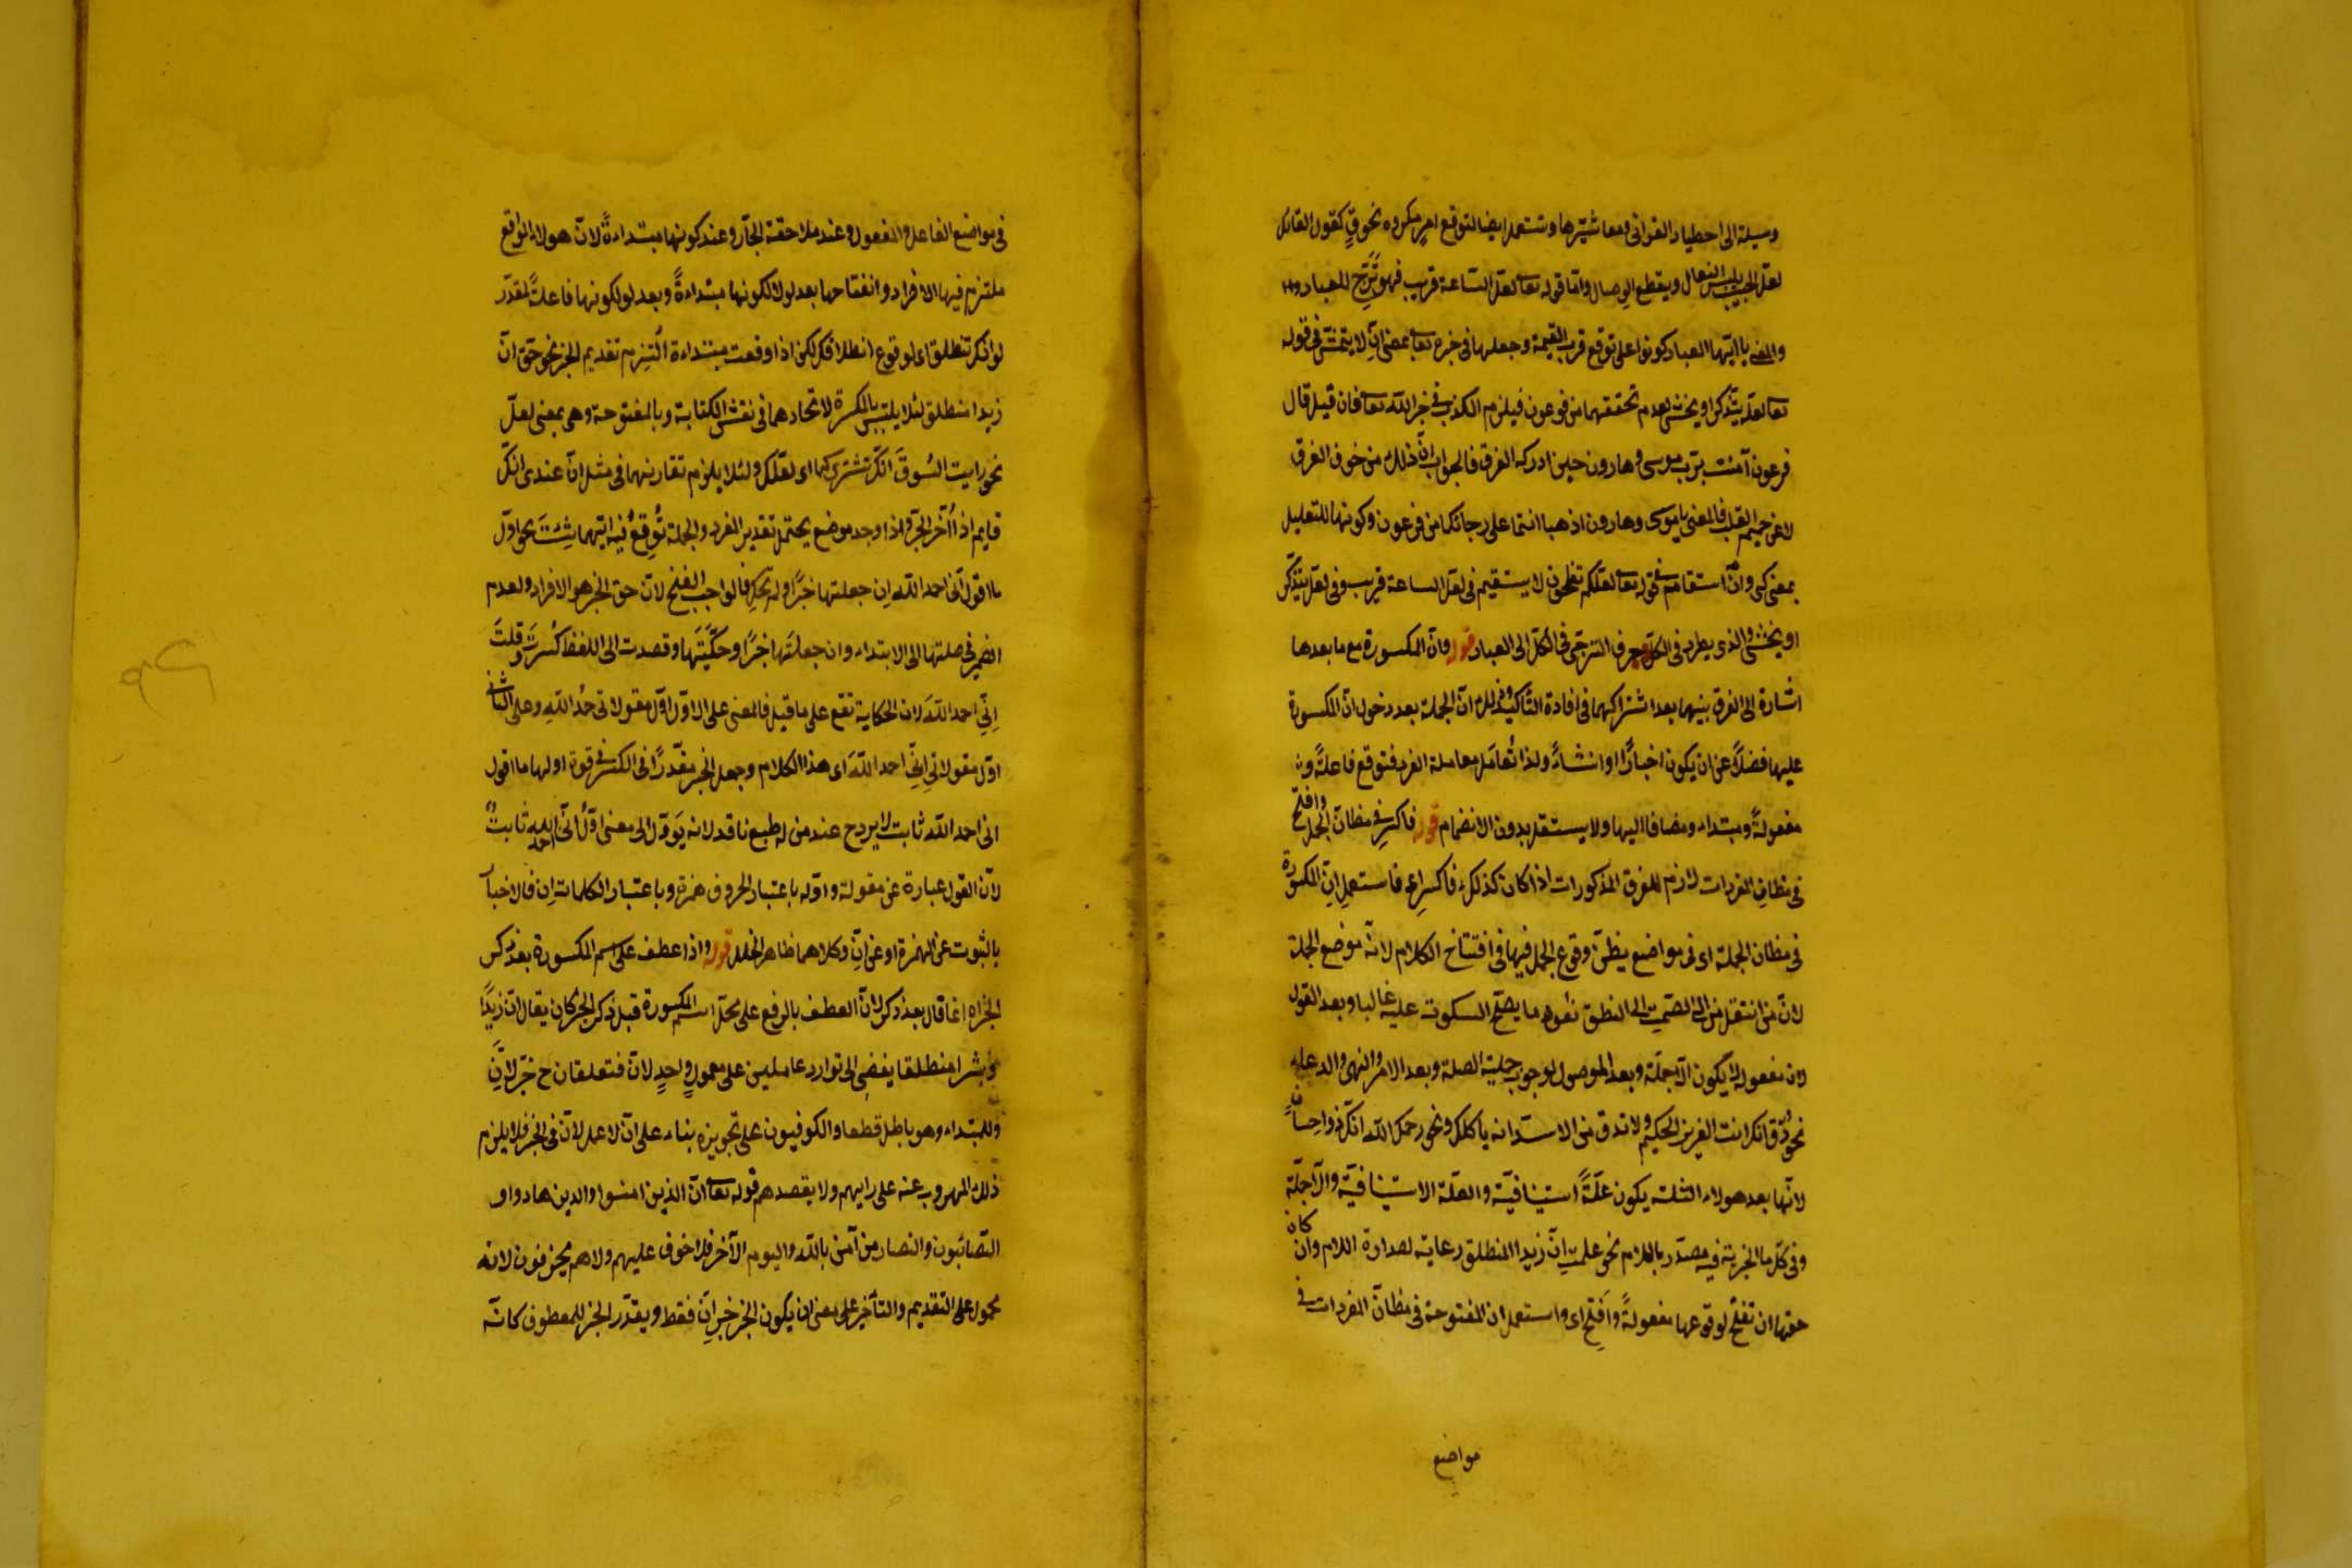 وسيلة الى اصطياد الغوانى ومعاشرتها وتستعمل ايضا لتوقع امر مكروه نحو قٍ كقول القائل
لعلّ الحبيب يلبس النعال ويقطع الوصال وامّا قوله تعا لعلّ الساعة قريب فهو ترجّ للعباد
والمعنى يا ايّها العباد كونوا على توقع قرب القيمة وجعلها فى خبره تعا بمعنى انّ لا يتمشى فى قوله
تعا لعلّه يتذكّر او يخشى لعدم تحققهما من فرعون فيلزم الكذب فى خبر الله تعا فان قيل قال
فرعون آمنت بربّ موسى وهارون حين ادركه الغرق فالجواب انّ ذلك من خوف الغرق
لا عن صميم القلب فالمعنى يا موسى وهارون اذهبا انتما على رجائكما من فرعون وكونها للتعليل
بمعنى كى وان استقام فى قوله تعا لعلّكم تفلحون لا يستقيم فى لعلّ الساعة قريب وفى لعلّه يتذكّر
او يخشى والذى يطرد فى الكلّ صرف الترجّى فى الكلّ الى العباد قوله وانّ المكسورة مع ما بعدها
اشارة الى الفرق بينهما بعد اشتراكهما فى افادة التأكيد وذلك انّ الجملة بعد دخول انّ المكسورة
عليها فضلاً عن ان يكون اخبارًا او انشاءً ولذا تُعامَل معاملة المفرد فتوقع فاعلةً و
مفعولةً ومبتداء ومضافا اليها ولا يستقلّ بدون الانضمام قوله فاكسر فى مظانّ الجمل وافتح
فى مظانّ المفردات لازم للفرق المذكورات اذا كان كذلك فاكسر اى فاستعمل انّ المكسورة
فى مظان الجملة اى فى مواضع يظنّ وقوع الجمل فيها فى افتتاح الكلام لانّه موضع الجملة
لانّ من انتقل من الصمت الى النطق تفوه ما يصحّ السكوت عليه غالبا وبعد القول
لان مفعوله لا يكون الّا جملة وبعد الموصول لوجوب جملية الصلة وبعد الامر والنهى والدعاء
نحو ذق انك انت العزيز الحكيم ولا تدق من الاسد انه ياكلك ونحو رحمك الله انّك ذو احسان
لانّها بعد هولاء الثلثة يكون علّةً استينافيّة والعلّة الاستينافيّة والّا جملة
وفى كلّ ما الخبريّة فيه مصدّر باللام نحو علمت انّ زيدا المنطلق رعاية لصدارة اللام وان كان
حقّها ان تفتح لوقوعها مفعولةً وافتح اى واستعمل ان المفتوحة فى مظانّ المفردات فى
مواضع
فى مواضع الفاعل والمفعول وعند ملاحقة الجارّ وعند كونها مبتداءةً لانّ هولاء المواقع
ملتزم فيها الافراد وانفتاحها بعد لولا لكونها مبتداءةً وبعد لو لكونها فاعلةً لمقدّر
لو انّك تنطلق اى لو وقع انطلاقك لكن اذا وقعت مبتداءة اُلتزم تقديم الخبر نحو حقّ انّ
زيدا منطلق لئلا يلتبس بالمكسرة لاتحادهما فى نقش الكتابة وبالمفتوحة وهى بمعنى لعلّ
نحو رايت السّوق انّك تشترى كما اى لعلّك ولئلا يلزم تقارنهما فى مثل انّ عندى انّك
قايم اذا اُخّر الخبر واذا وجد موضع يحتمل تقدير المفرد والجملة تُوقع فيه ايّتهما شئتَ نحو اوّل
ما اقول انّى احمد الله ان جعلتها خبرًا ولم تحكِ فالواجب الفتح لانّ حقّ الخبر هو الافراد ولعدم
الضمير فى صلتها الى الابتداء وان جعلتَها خبرًا وحكيتَها وقصدت الى اللفظ كُسرت وقلتَ
اِنّى احمد اللهَ لان الحكاية تقع على ما قيل فالمعنى على الاوّل اوّل مقولاتى حمدُ اللهِ وعلى الثانى
اوّل مقولاتى اِنّى احمد اللهَ اى هذا الكلام وجعل الخبر مقدّرًا فى الكسر فى قوة اوّلها ما اقول
انى احمد الله ثابت لا يردح عند من له طبع ناقد لانه يَؤوّل الى معنى اوّل انّى احمد الله ثابتٌ
لانّ القول عبارة عن مقولة واوّله باعتبار الحروف همزة وباعتبار الكلمات اِنّ فالاخبار
بالثبوت عن الهمزة او عن اِنّ وكلاهما ظاهر الخلل قوله واذا عطف على اسم المكسورة بعد ذكر
الخبر اه انما قال بعد ذكر لانّ العطف بالرفع على محلّ اسم المكسورة قبل ذكر الخبر كان يقال انّ زيدًا
وبشر منطلقا يفضى الى توارد عاملين على معمولٍ واحدٍ لانّ فتعلقان ح خبر لانّ
وللمبتداء وهو باطل قطعا والكوفيون على تجويزه بناء على انّ لا عمل لانّ فى الخبر فلا يلزم
ذلك المهروب عنه على رايهم ولا يقصدهم قوله تعا انّ الذين امنوا والذين هادوا و
الصّائبون والنصار من آمن بالله واليوم الآخر فلا خوف عليهم ولا هم يحزنون لانه
محمول على التقديم والتأخير على معنى ان يكون الخبر خبر اِنّ فقط ويقدّر الخبر للمعطوف كانّه